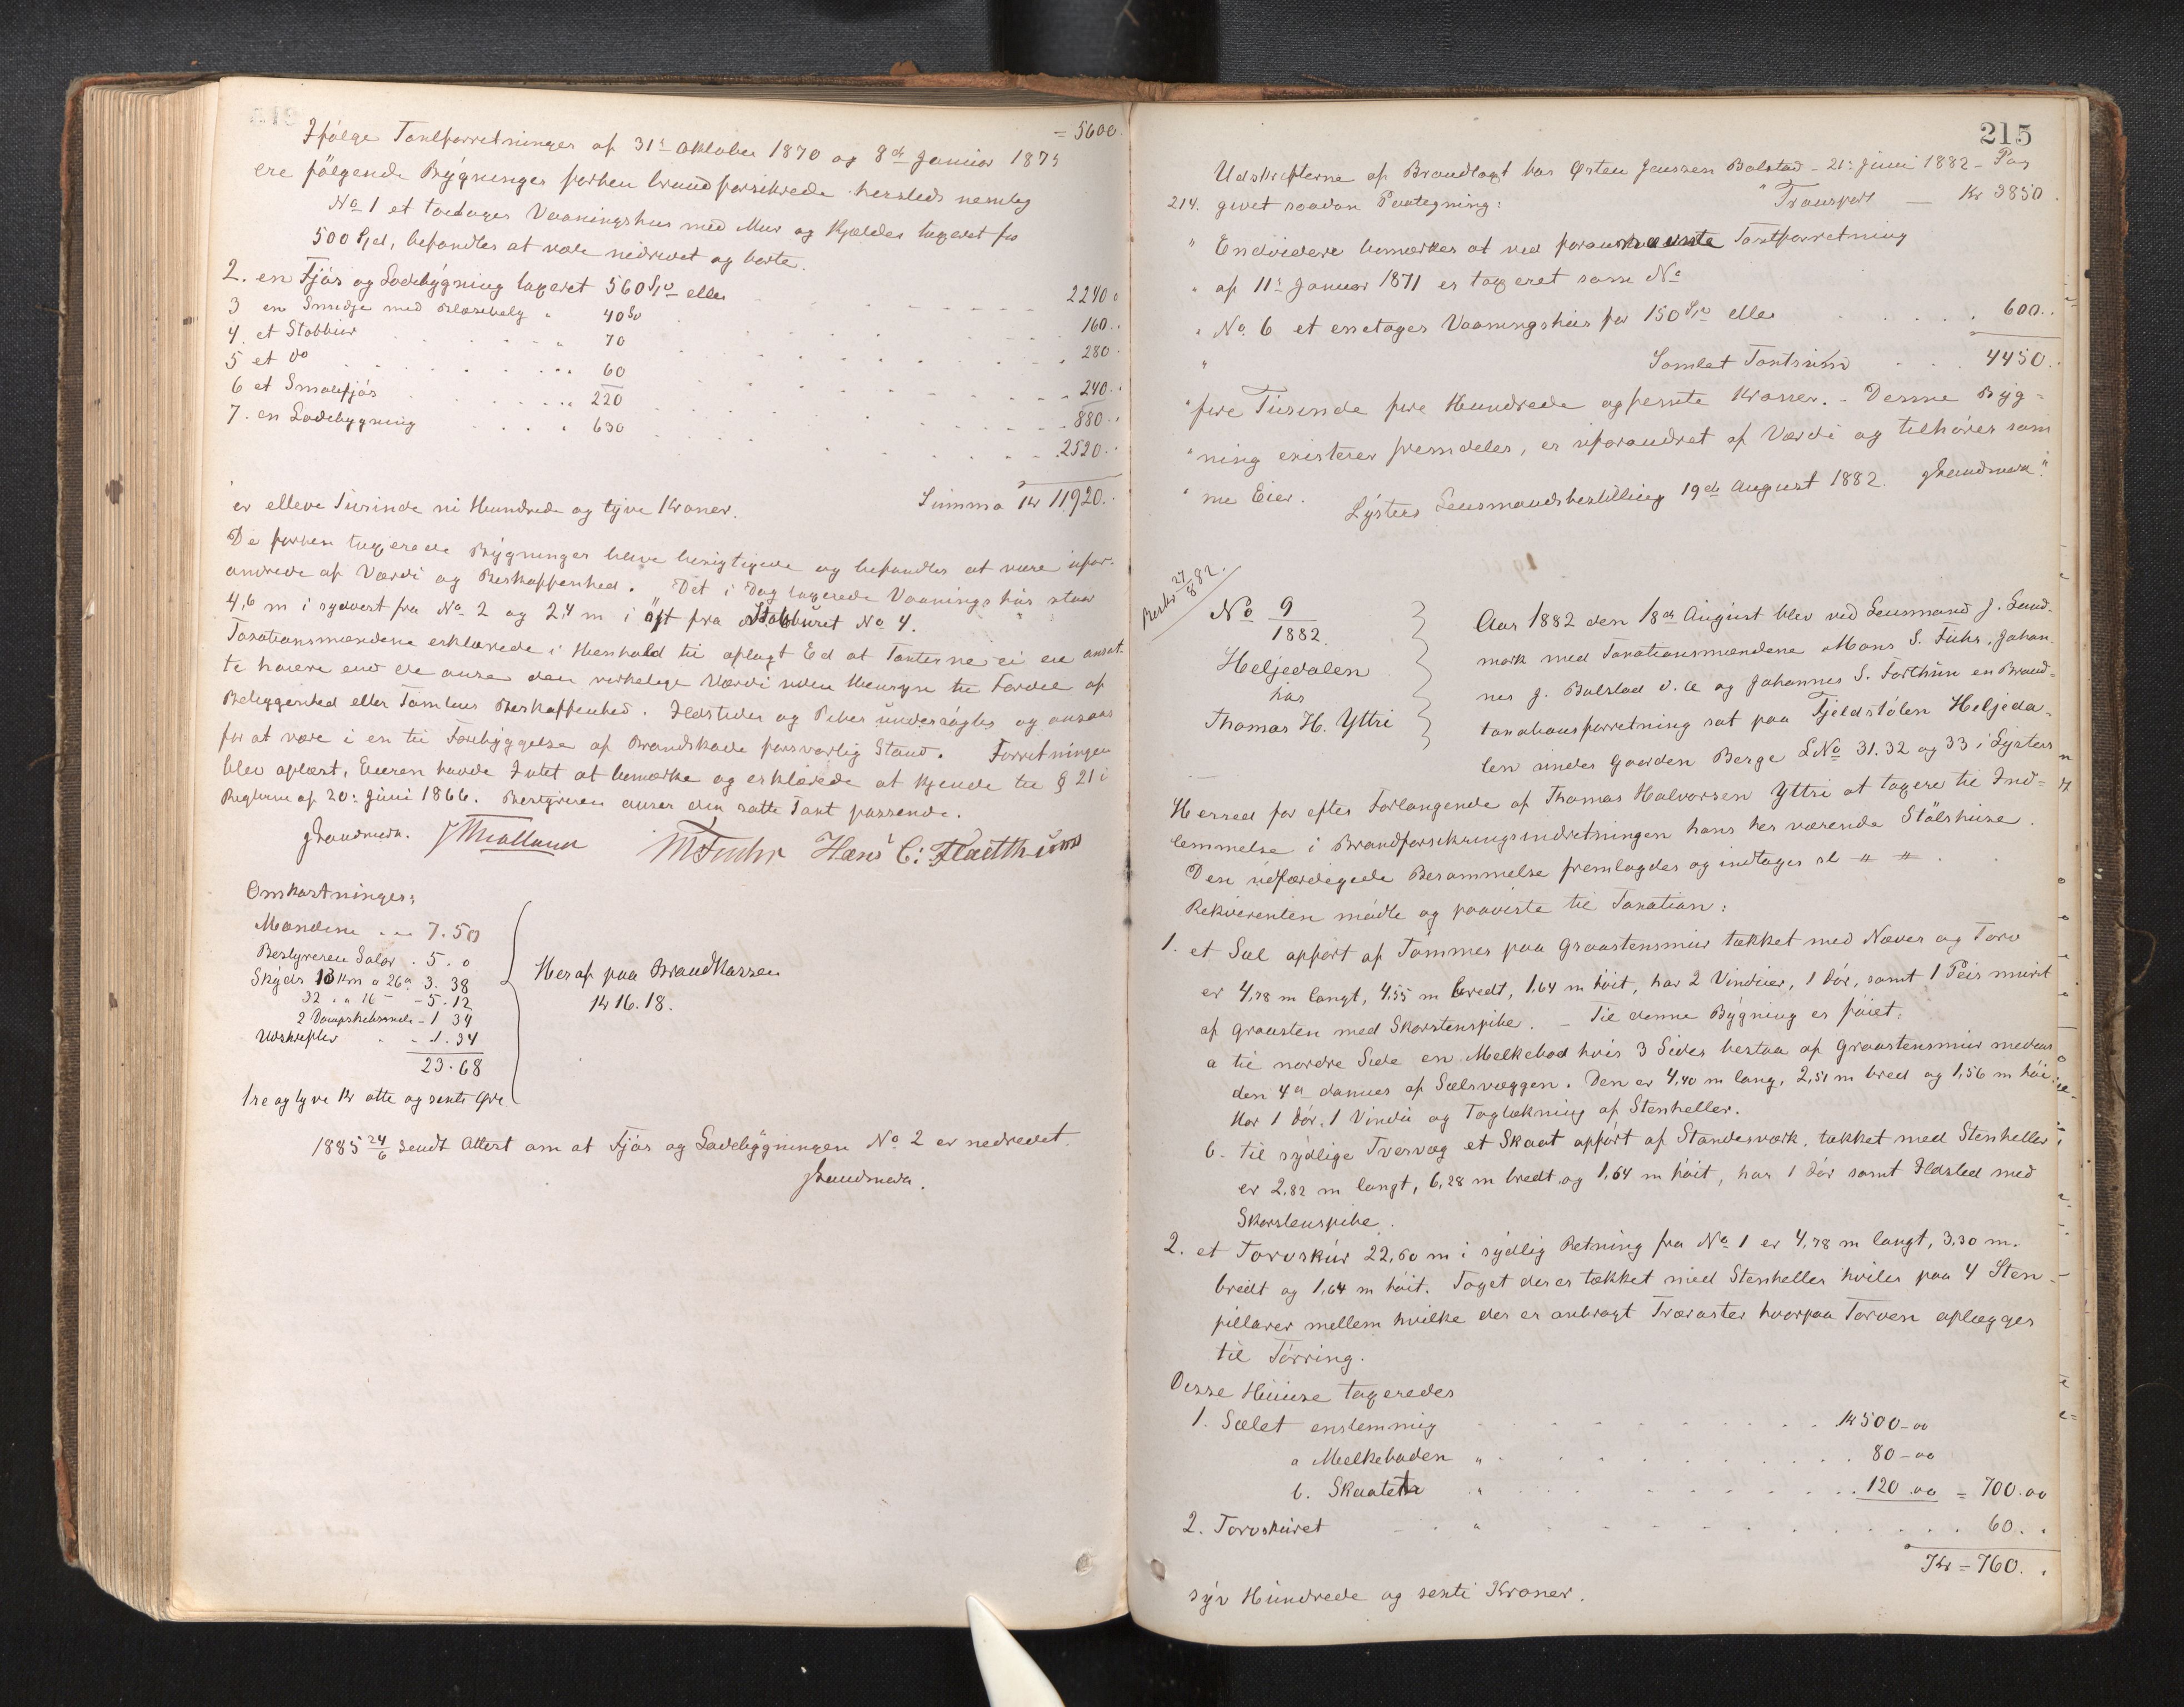 = 5600.
Ifølge Taxtforretninger af 31te Oktober 1870 og 8de Januar 1875
ere følgende Bygninger forhen brandforsikrede hersteds nemlig
No 1 et toetages Vaaningshus med Mur og Kjælder taxeret for
500 Spd, befandtes at være nedrevet og borte.
2. en Fjøs og Ladebygning taxeret 560 Spd eller 2240 "
3 en Smedje med Blæsebelg " 40 Sp 160. "
4. et Stabbur " 70 280 "
5 et do " 60 240. "
6 et Smalefjøs " 220 880 "
7. en Ladebygning " 630 2520. "
Summa Kr 11920. "
er elleve Tusinde ni Hundrede og tyve Kroner.
De forhen taxerede Bygninger bleve besigtigede og befandtes at være ufor-
andrede af Værdi og Beskaffenhed. Det i Dag taxerede Vaaningshus staar
4,6 m i sydvest fra No 2 og 2,4 m i øst fra Stabburet No 4.
Taxationsmændene erklærede i Henhold til aflagt Ed at Taxterne ei ere ansat-
te høiere end de anse den virkelige Værdi uden Hensyn til Fordel af
Beliggenhed eller Tomtens Beskaffenhed. Ildsteder og Piber undersøgtes og ansaaes
for at være i en til Forebyggelse af Brandskade forsvarlig Stand. Forretningen
blev oplæst, Eieren havde Intet at bemærke og erklærede at kjende til § 21 i
Reglerne af 20. Juni 1866. Bestyreren anser den satte Taxt passende.
JLandmark. MFuhr Hans C: Flatthuus
Omkostninger:
Mændene " " 7.50
Bestyreren Salær . 5. 0
Skyds 13 Km a 26 ø. 3. 38
32 " a 16 - - 5.12
2 Dampskibsmile - 1 34
Udskrifter . . 1.34
23.68
tre og tyve Kr otte og sexti Øre
Heraf paa Brandkassen
Kr 16.18.
1885 24/6 sendt Attest om at Fjøs og Ladebygningen No 2 er nedrevet.
JLandmark.
215
Udskrifterne af Brandtaxt hos Østen Jensen Bolstad - 21. Juni 1882 - Pag
214. givet saadan Paategning: " Transport — Kr 3850.
" Endvidere bemærkes at ved forannævnte Taxtforretning
" af 11te Januar 1871 er taxeret som No
" No 6 et enetages Vaaningshus for 150 Spd eller 600. "
" Samlet Taxtsum 4450. "
" fire Tusinde fire Hundrede og femti Kroner. - Denne Byg-
" ning existerer fremdeles, er uforandret af Værdi og tilhører sam
" me Eier. Lysters Lensmandsbestilling 19de August 1882. JLandmark."
Besbr 27/8 82.
No 9/1882.
Heljedalen
hos
Thomas H. Yttri
Aar 1882 den 18de August blev ved Lensmand J. Land-
mark med Taxationsmændene Mons S. Fuhr, Johan-
nes J. Bolstad d. æ og Johannes S. Forthun en Brand-
taxationsforretning sat paa Fjeldstølen Heljeda-
len under Gaarden Berge LNo 31. 32 og 33 i Lysters
Herred for efter Forlangende af Thomas Halvorsen Yttri at taxere til Ind-
lemmelse i Brandforsikringsindretningen hans her værende Stølshuse.
Den udfærdigede Besammelse fremlagdes og indtages sl " "
Rekvirenten mødte og paaviste til Taxation:
1. et Sæl opført af Tømmer paa Graastensmur tækket med Næver og Torv
er 4,78 m langt, 4,55 m bredt, 1,64 m høit, har 2 Vinduer, 1 Dør, samt 1 Peis muret
af Graasten med Skorstenspibe. - Til denne Bygning er føiet:
a til nordre Side en Melkebod hvis 3 Sider bestaa af Graastensmur medens
den 4de dannes af Sælsvæggen. Den er 4,40 m lang, 2,51 m bred og 1,56 m høi.
Har 1 Dør, 1 Vindu og Tagtækning af Stenheller.
b. til sydlige Tvervæg et Skaat opført af Standeværk, tækket med Stenheller
er 2,82 m langt, 6,28 m bredt og 1,64 m høit, har 1 Dør samt Ildsted med
Skorstenspibe.
2. et Torvskur 22,60 m i sydlig Retning fra No 1 er 4,78 m langt, 3,30 m.
bredt og 1,64 m høit. Taget der er tækket med Stenheller hviler paa 4 Sten-
pillarer mellem hvilke der er anbragt Træraster hvorpaa Torven oplægges
til Tørring.
Disse Huuse taxeredes
1. Sælet enstemmig Kr 500 - 00
a Melkeboden " 80 - 00
b. Skaatet " 120 .00 = 700.00
2. Torvskuret " 60. "
Kr = 760. "
syv Hundrede og sexti Kroner.